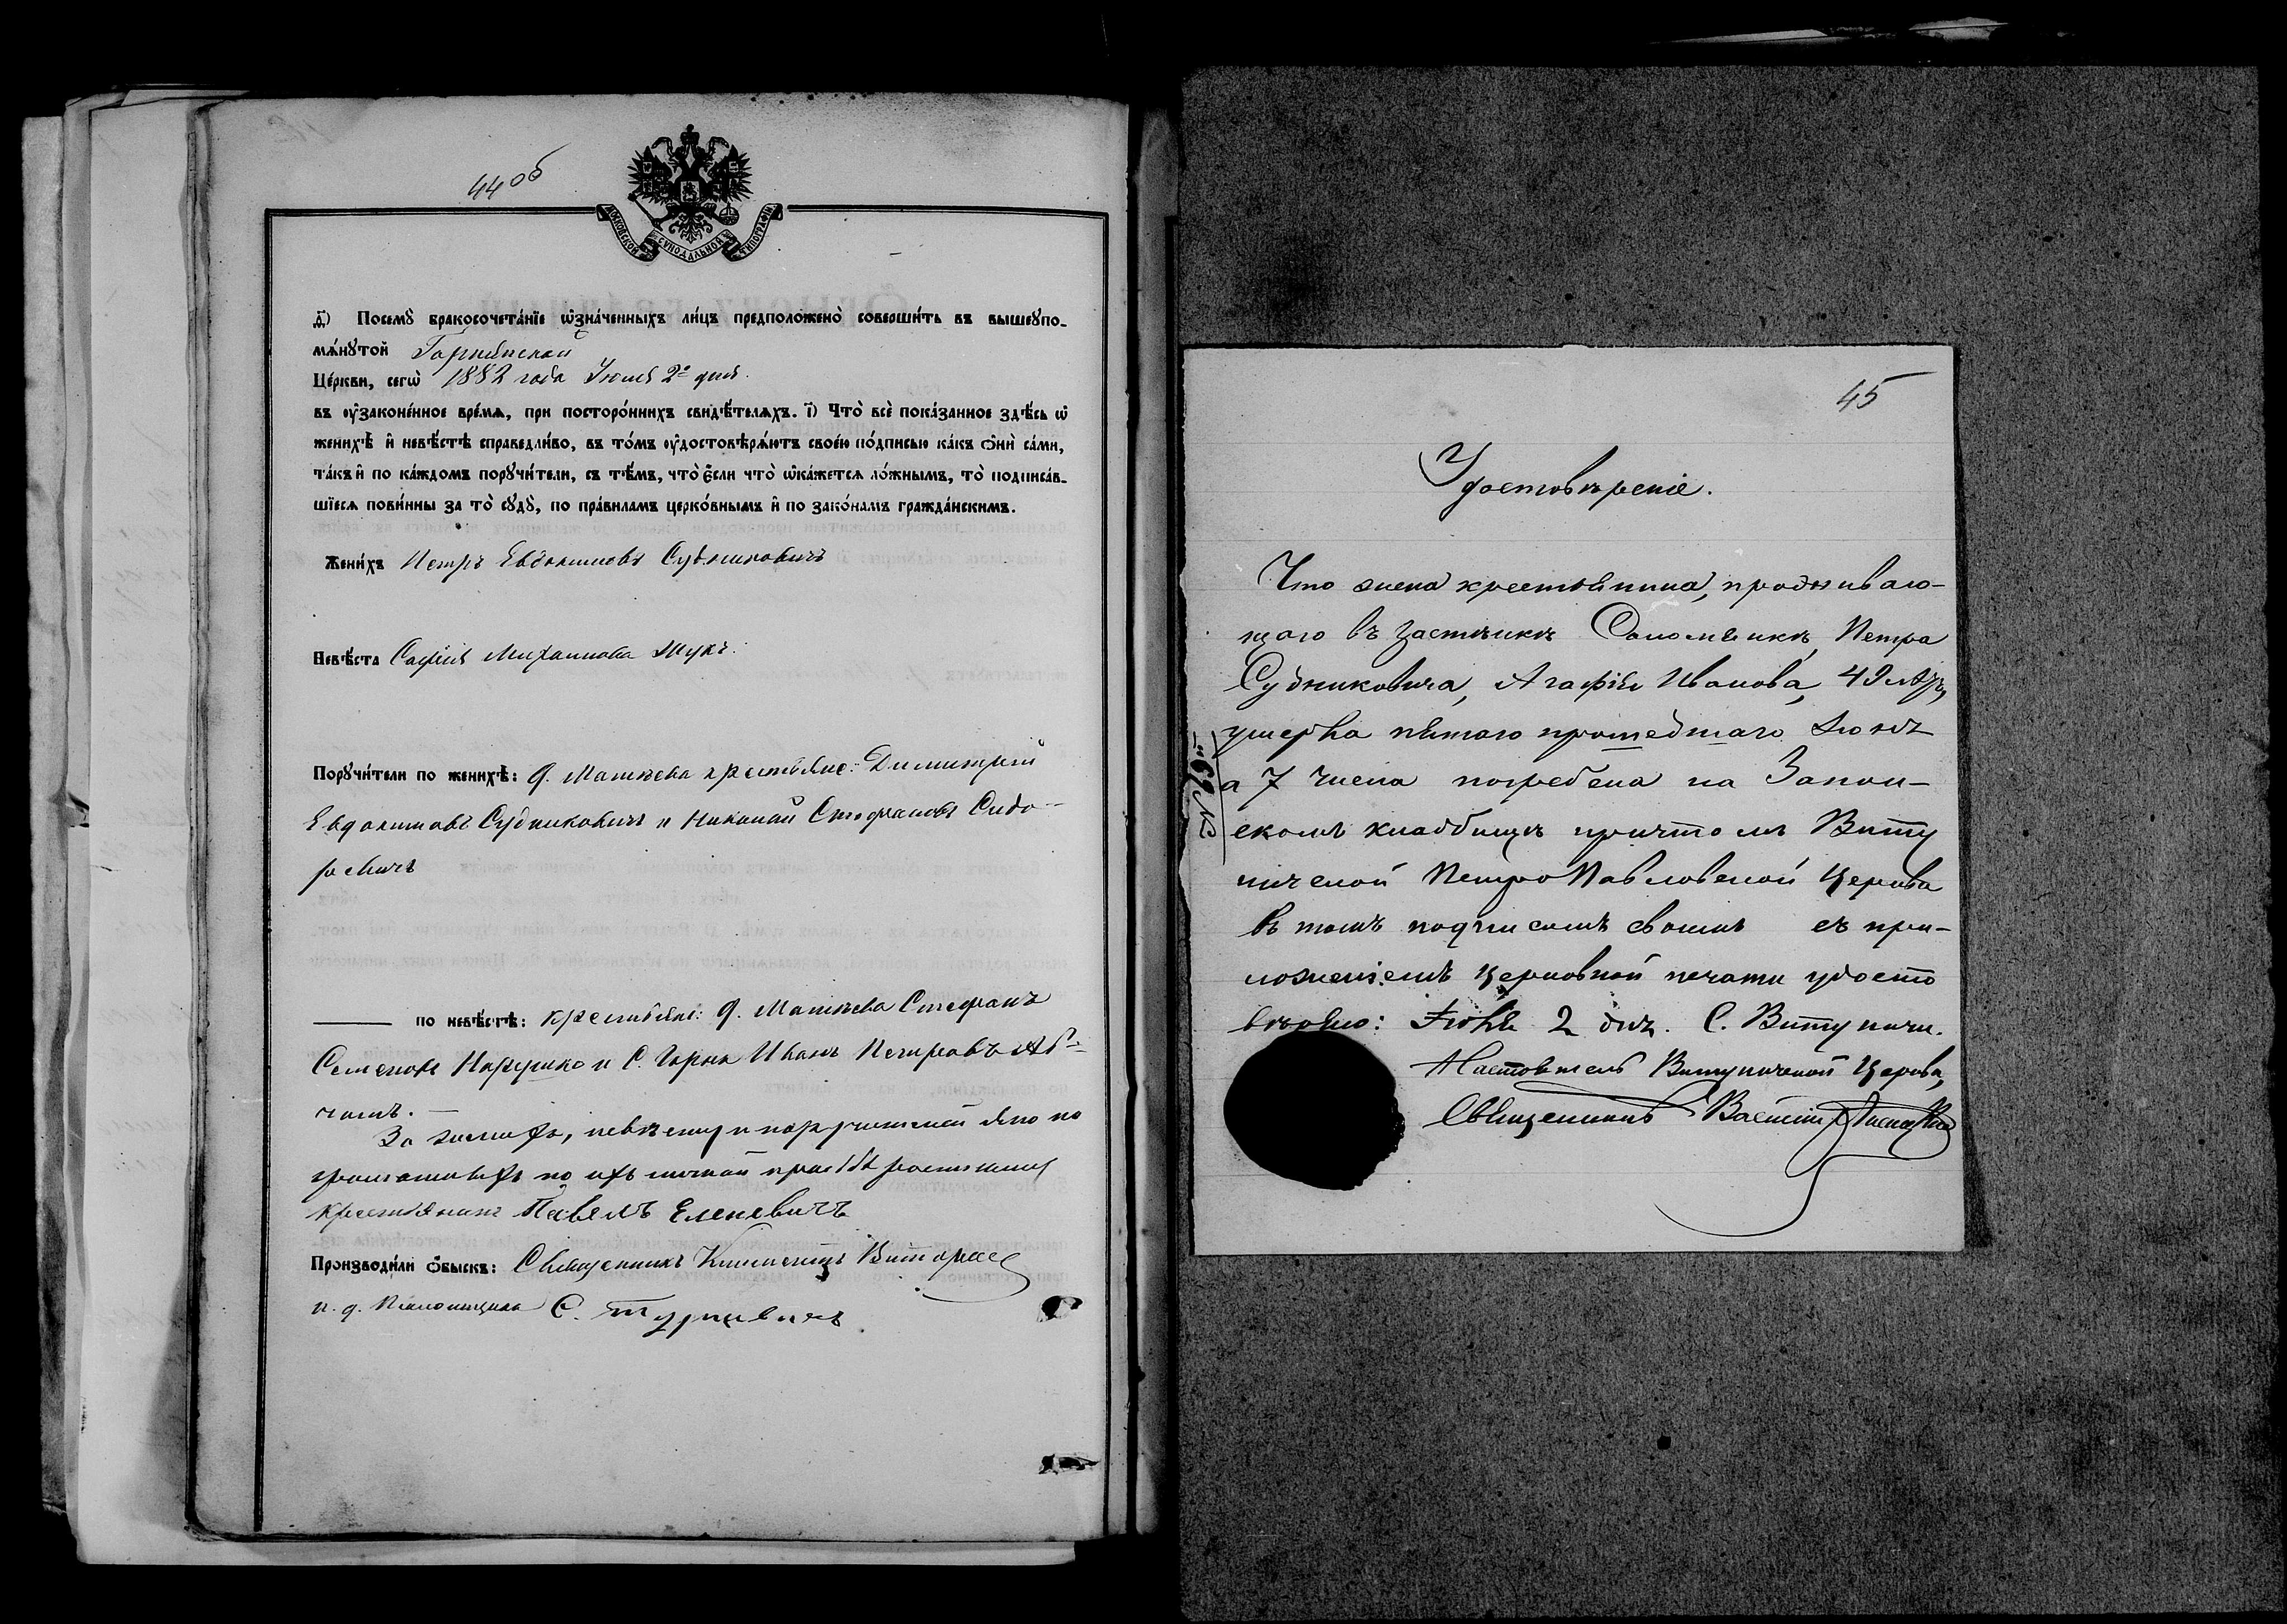 44 об
МОСКОВСКОЙ СѴНОДАЛЬНОЙ ТИПОГРАФІИ
д҃) Посемꙋ̀ бракосочета́нїе ѡ҆зна́ченныхъ ли́цъ предположено̀ соверши́ть въ вышеꙋпо-
мѧ́нꙋтой
Це́ркви, сегѡ̀ 1882 года Іюля 2го дня
въ ᲂу҆законе́нное вре́мѧ, при посторо́ннихъ свидѣ́телѧхъ. і҃) Что̀ всѐ пока́занное здѣ́сь ѡ҆
женихѣ̀ и҆ невѣ́стѣ справедли́во, въ то́мъ ᲂу҆достовѣрѧ́ютъ свое́ю по́дписью ка́къ ѻ҆нѝ са́ми,
та́къ и҆ по ка́ждомъ порꙋчи́тели, съ тѣ́мъ, что̀ є҆́сли что̀ ѡ҆ка́жетсѧ ло́жнымъ, то̀ подписа́в-
шїесѧ пови́нны за то̀ сꙋдꙋ̀, по пра́виламъ церко́внымъ и҆ по зако́намъ гражда́нскимъ.
Жени́хъ Петръ Евдокимовъ Судниковичъ
Невѣ́ста Софія Михаилова Жукъ.
Порꙋчи́тели по женихѣ̀: д. Матьева крестьяне: Димитрій
Евдокимовъ Судниковичъ и Николай Стефановъ Сидо-
ровичъ
по невѣ́стѣ: крестьяне: д. Матьева Стефанъ
Семеновъ и С. Иванъ Петровъ
За жениха, невѣсту и поручителей яко не
грамотныхъ по ихъ личной просьбѣ росписался
крестьянинъ Павелъ Еленевичъ
Производи́ли ѻ҆́быскъ: Священникъ Климентъ
и. д. Псаломщика С.
45
Удостовѣреніе.
Что жена крестьянина, проживаю-
щаго въ застѣнкѣ Петра
Судниковича, Агафія Иванова, 49 лѣтъ,
умерла пятаго прошедшаго Іюня
а 7 числа погребена на Запол-
скомъ кладбищѣ причтомъ Виту
ничской Петропавловской Церкви
въ томъ подписомъ своимъ съ при-
ложеніемъ церковной печати удосто
вѣряю: Іюля 2 дня. С. Витуничи.
Настоятель Витуничской Церкви,
Священникъ Василій
№ 69й